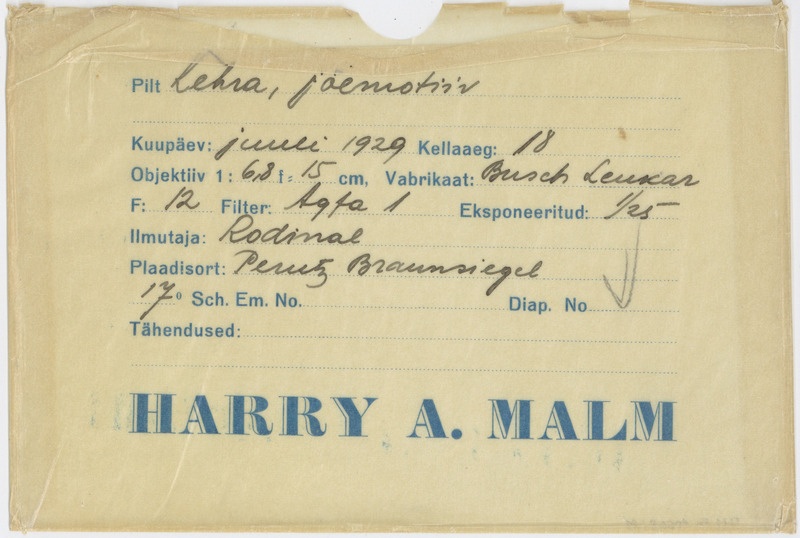 Pilt Kehra, jõemotiiv
Kuupäev: juuli 1929 Kellaaeg: 18
Objektiiv 1: 6,8 f = 15 cm, Vabrikaat: Busch Leukar
F: 12 Filter: Agfa 1 Eksponeeritud: 1/25
Ilmutaja: Rodinal
Plaadisort: Perutz Braunsiegel
17° Sch. Em. No. Diap. No
Tähendused:
HARRY A. MALM